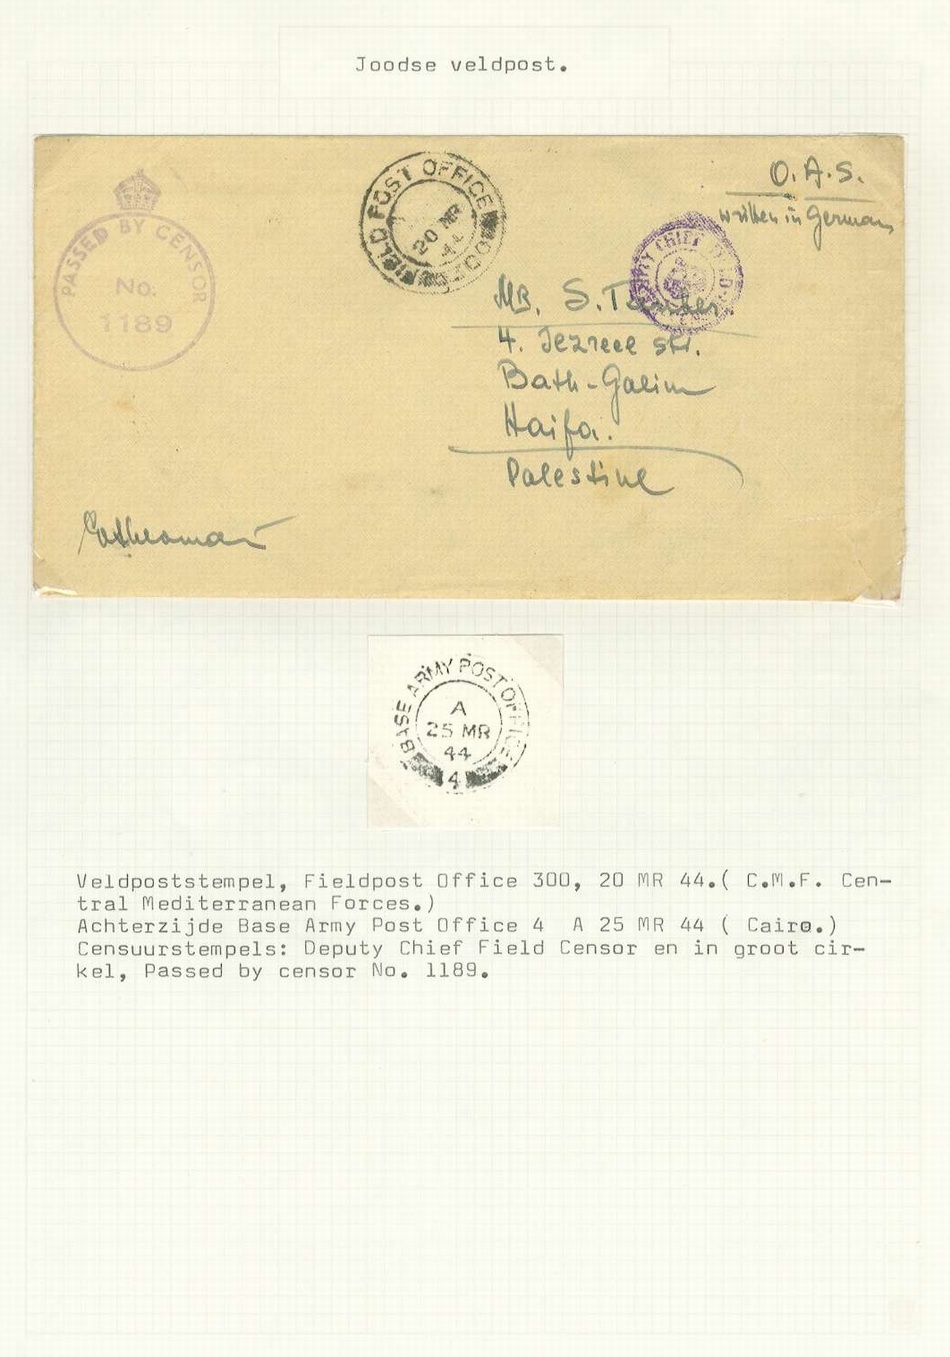 Joodse veldpost.
O.A.S.
written in German
FIELD POST OFFICE 300
20 MR
44
PASSED BY CENSOR
No.
1189
CHIEF FIELD
MR. S.
4. Jezreel str.
Bath-Galim
Haifa.
Palestine
BASE ARMY POST OFFICE
A
25 MR
44
4
Veldpoststempel, Fieldpost Office 300, 20 MR 44.( C.M.F. Cen-
tral Mediterranean Forces.)
Achterzijde Base Army Post Office 4 A 25 MR 44 ( Cairo.)
Censuurstempels: Deputy Chief Field Censor en in groot cir-
kel, Passed by censor No. 1189.